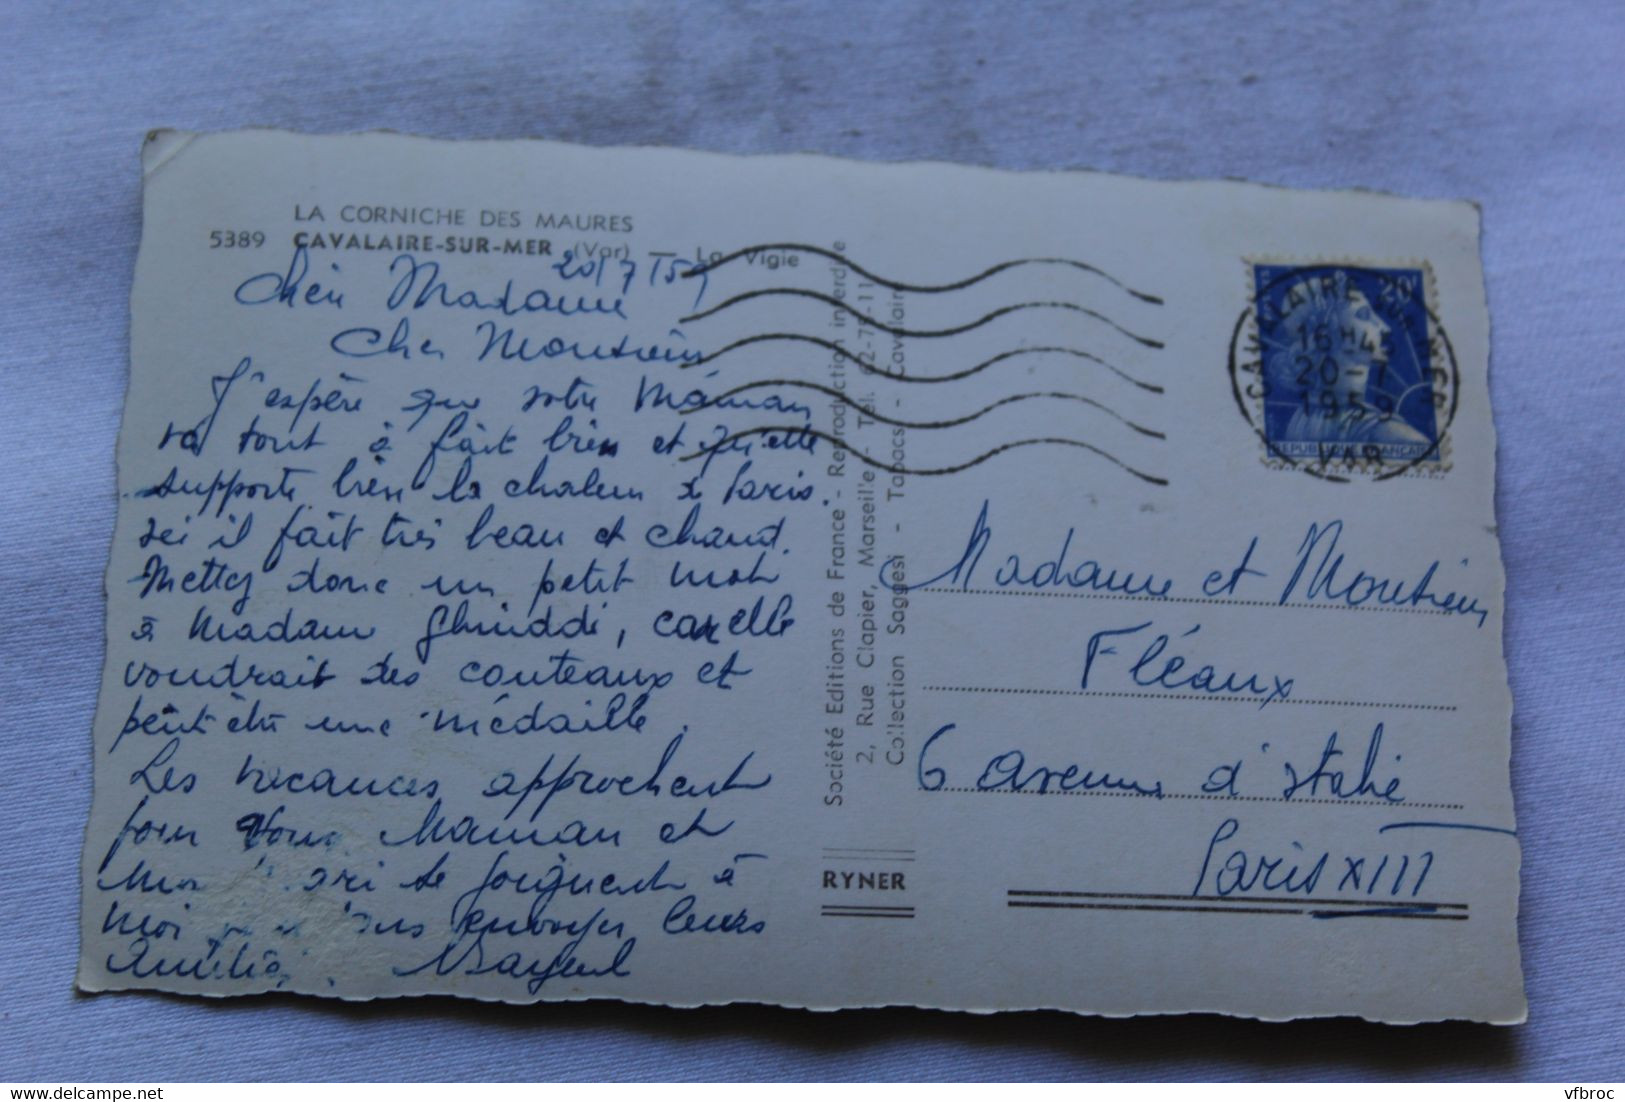 LA CORNICHE DES MAURES
5389 CAVALAIRE-SUR-MER (Var) — La Vigie
20/7/59
Chère Madame
Cher Monsieur
J'espère que votre Maman
va tout à fait bien et qu'elle
supporte bien la chaleur à Paris.
Ici il fait très beau et chaud.
Mettez donc un petit mot
à Madame car elle
voudrait des couteaux et
peut être une médaille.
Les vacances approchent
pour vous Maman et
mon mari se joignent à
moi pour vous envoyer leurs
Amitiés.
Société Editions de France - Reproduction interdite
2, Rue Clapier, Marseille - Tél. 62-75-11
Collection Saggesi - Tabacs - Cavalaire
RYNER
20F
REPUBLIQUE FRANÇAISE
CAVALAIRE SUR MER
16H45
20-7
1959
VAR
Madame et Monsieur
Fléaux
6 avenue d'Italie
Paris XIII
vfbroc
delcampe.net